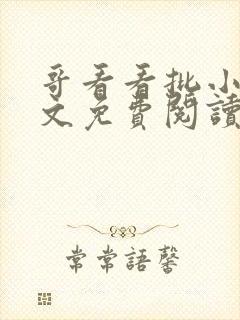 哥看看批小
文免費閱讀
常常語馨